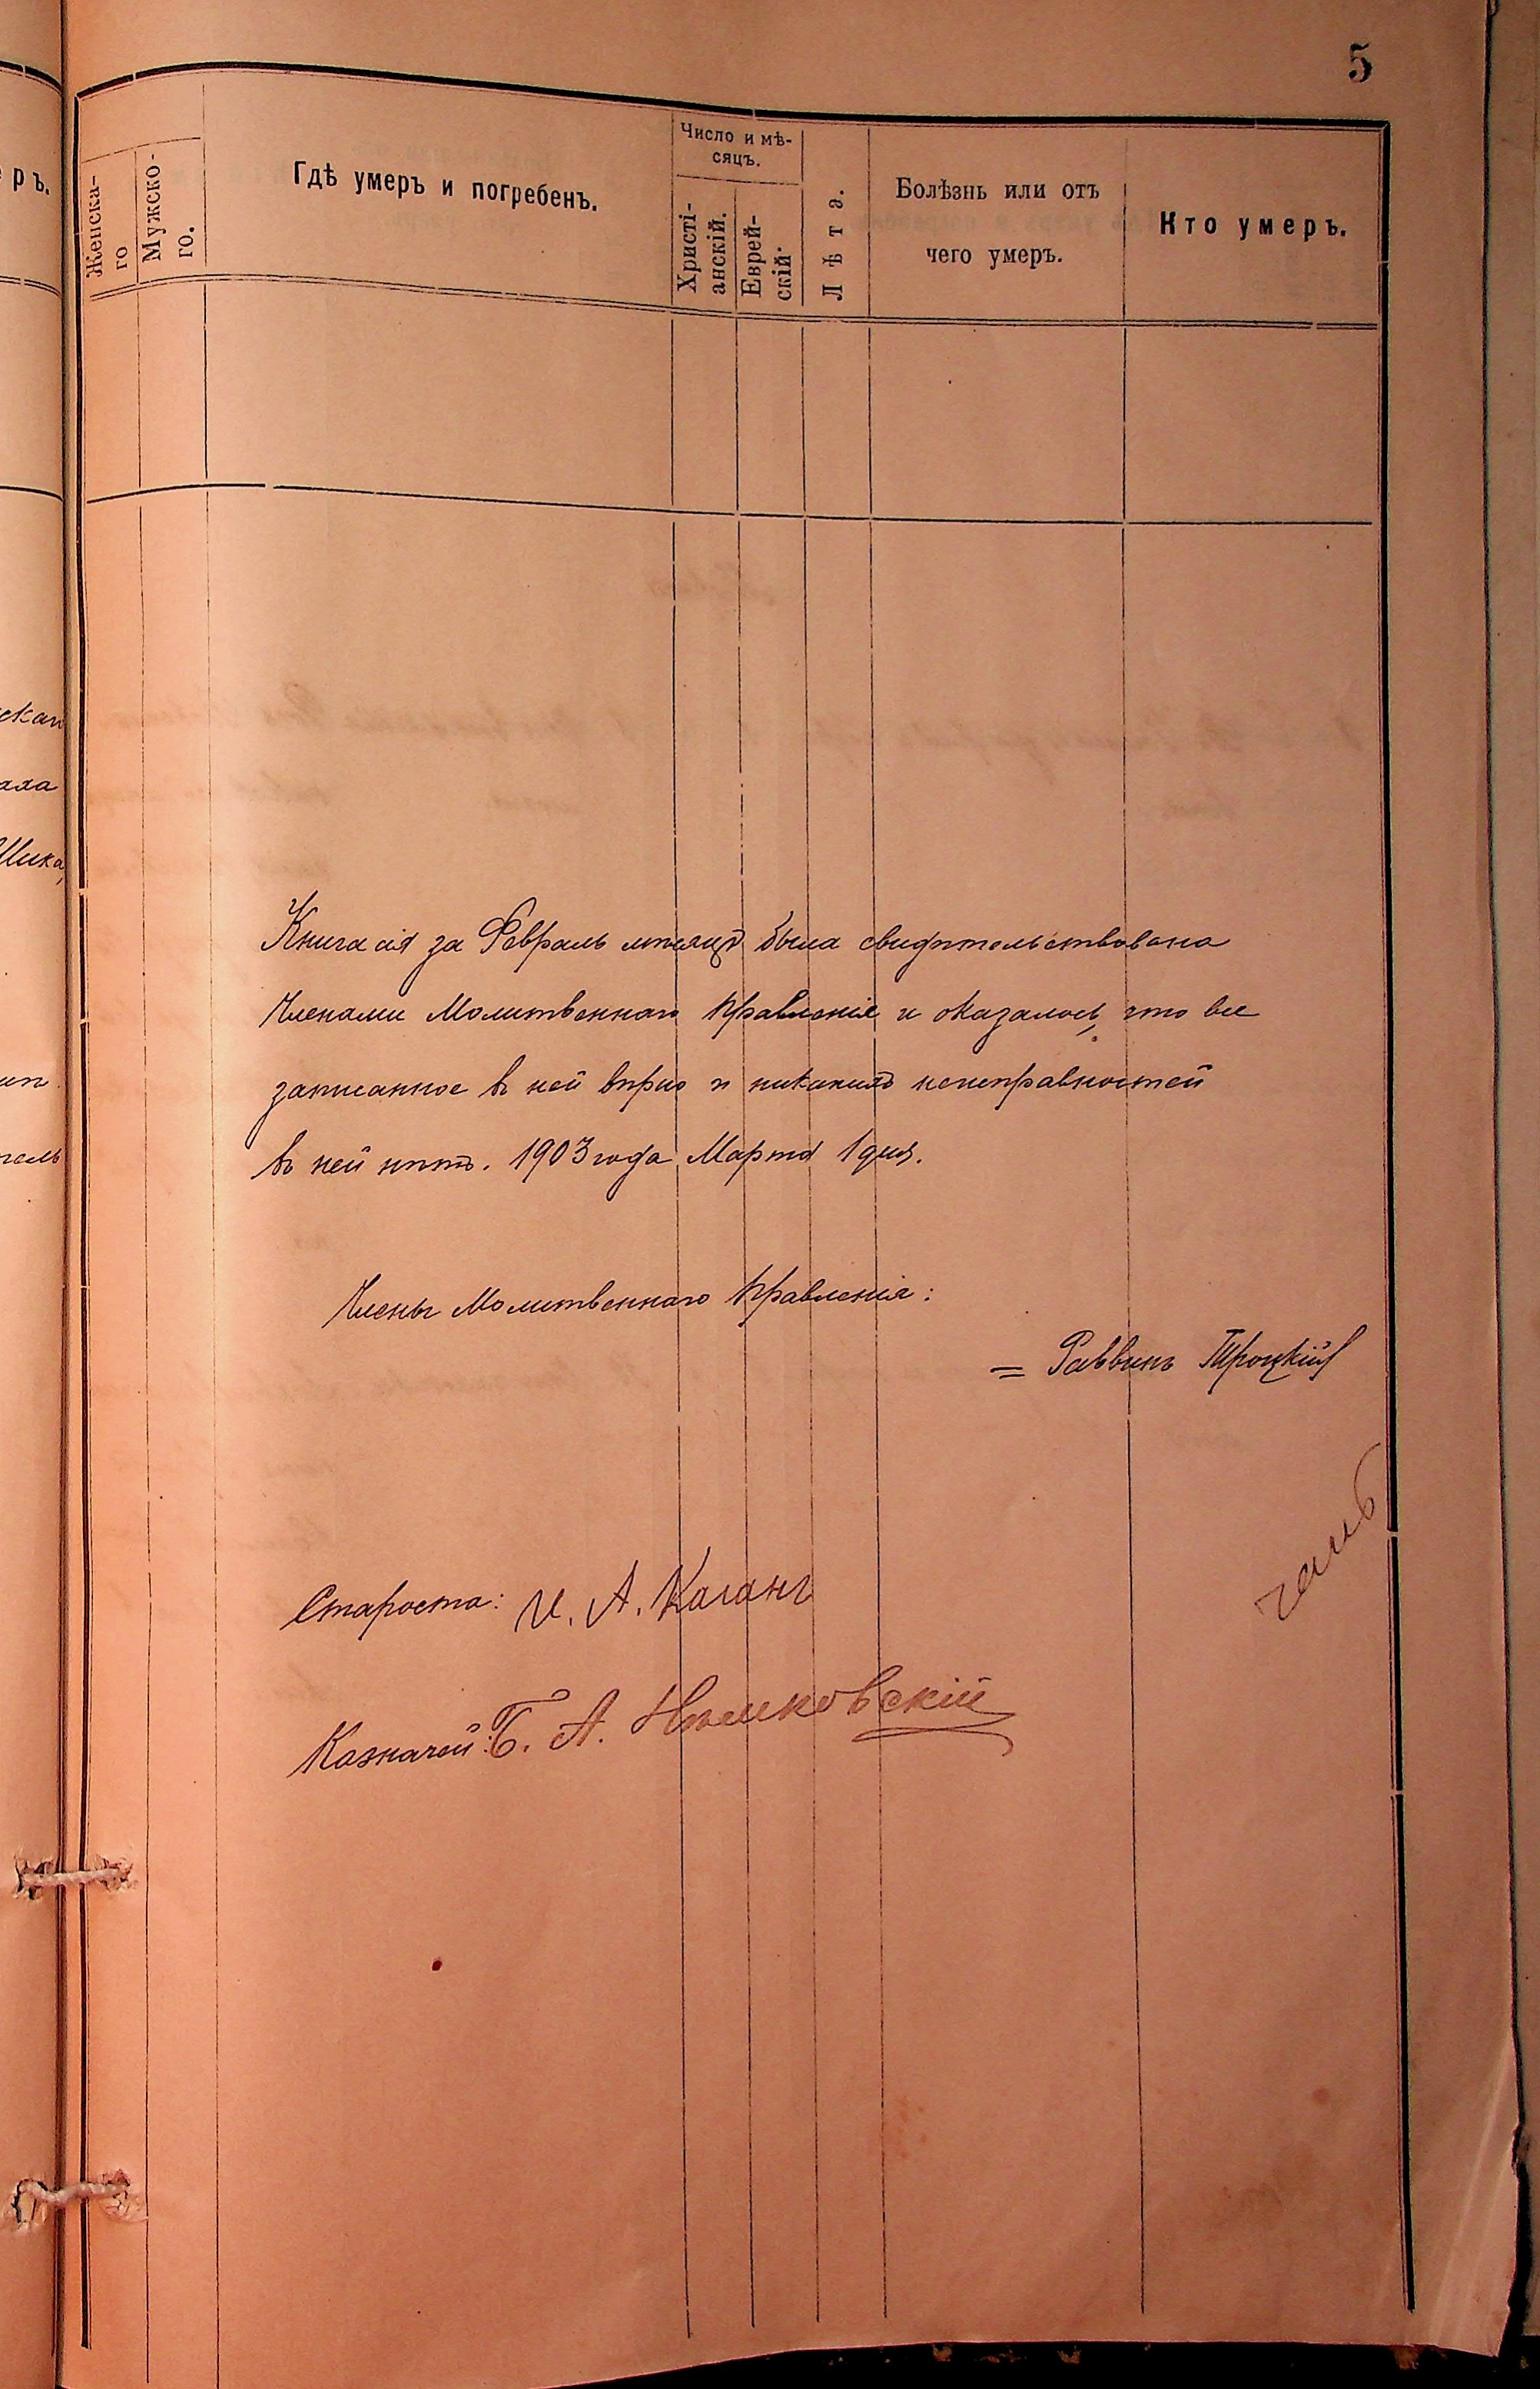 5
еръ.
Женска-
го
Мужско-
го.
Гдѣ умеръ и погребенъ.
Число и мѣ-
сяцъ.
Христі-
анскій.
Еврей-
скій.
Лѣта.
Болѣзнь или отъ
чего умеръ.
Кто умеръ.
Книга сія за Февраль мѣсяцъ была свидѣтельствована
Членами Молитвеннаго Правленія и оказалось, что все
записанное въ ней вѣрно и никакихъ неисправностей
въ ней нѣтъ. 1903 года Марта 1 дня.
Члены Молитвеннаго Правленія:
= Раввинъ Троцкій
Староста: И. А. Каганъ
Казначей: Б. А. Немковскій